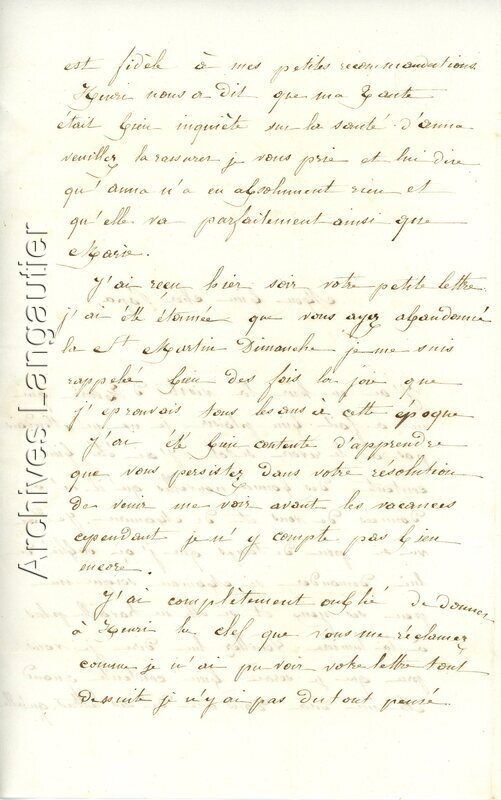 est fidèle à mes petites recommandations.
Henri nous a dit que ma tante
était bien inquiète sur la santé d'anna
veuillez la rassurer je vous prie et lui dire
qu'anna n'a eu absolument rien et
qu'elle va parfaitement ainsi que
Marie.
J'ai reçu hier soir votre petite lettre
j'ai été étonnée que vous ayez abandonné
la St Martin Dimanche je me suis
rappelé bien des fois la joie que
j'éprouvais tous les ans à cette époque
J'ai été bien contente d'apprendre
que vous persistez dans votre résolution
de venir me voir avant les vacances
cependant je n'y compte pas bien
encore.
J'ai complètement oublié de donner
à Henri la clef que vous me réclamez
comme je n'ai pu voir votre lettre tout
dessuite je n'y ai pas du tout pensé.
Archives Langautier